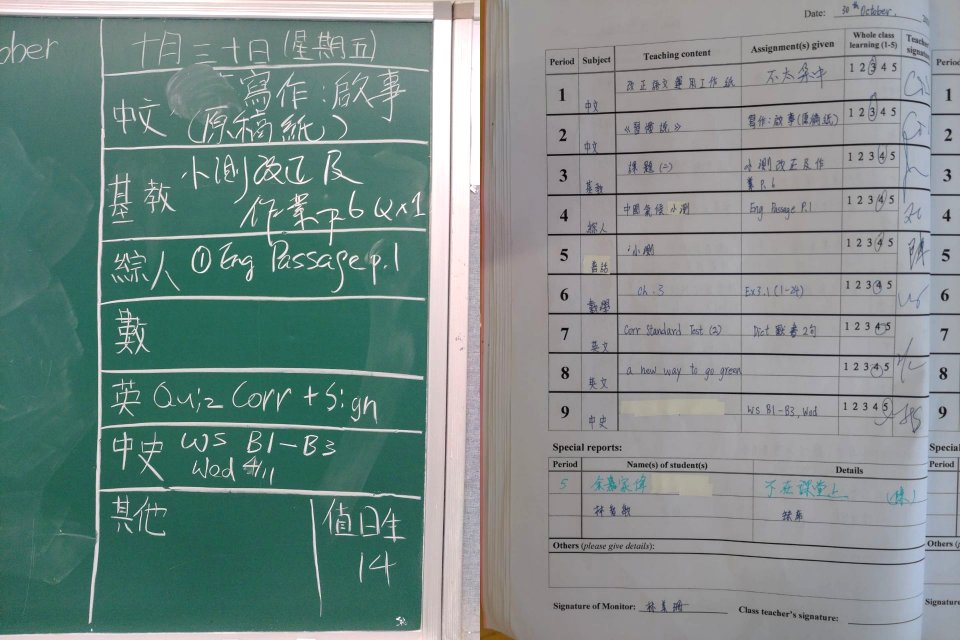 ober
十月三十日(星期五)
中文 寫作:啟事
(原稿紙)
基教 小測改正及
作業p.6 Qx1
綜人 ① Eng Passage p.1
數
英 Quiz Corr + Sign
中史 WS B1-B3
Wed 4/11
其他 值日生
14
Date: 30th October
Period Subject Teaching content Assignment(s) given Whole class learning (1-5) Teacher signature
1 中文 改正語文運用工作紙 不太集中 1 2 3 4 5
2 中文 《習慣說》 寫作:啟事(原稿紙) 1 2 3 4 5
3 基教 課題(二) 小測改正及作業 p.6 1 2 3 4 5
4 綜人 中國氣候小測 Eng Passage P.1 1 2 3 4 5
5 普話 小測 1 2 3 4 5
6 數學 ch.3 Ex3.1 (1-24) 1 2 3 4 5
7 英文 Corr Standard Test (2) Dict 默書2句 1 2 3 4 5
8 英文 a new way to go green 1 2 3 4 5
9 中史 WS B1-B3, Wed 1 2 3 4 5
Special reports:
Period Name(s) of student(s) Details
5 不在課堂上
Others (please give details):
Signature of Monitor: Class teacher's signature:
1
2
3
4
5
6
7
8
9
Special
Period
Others (p
Signature